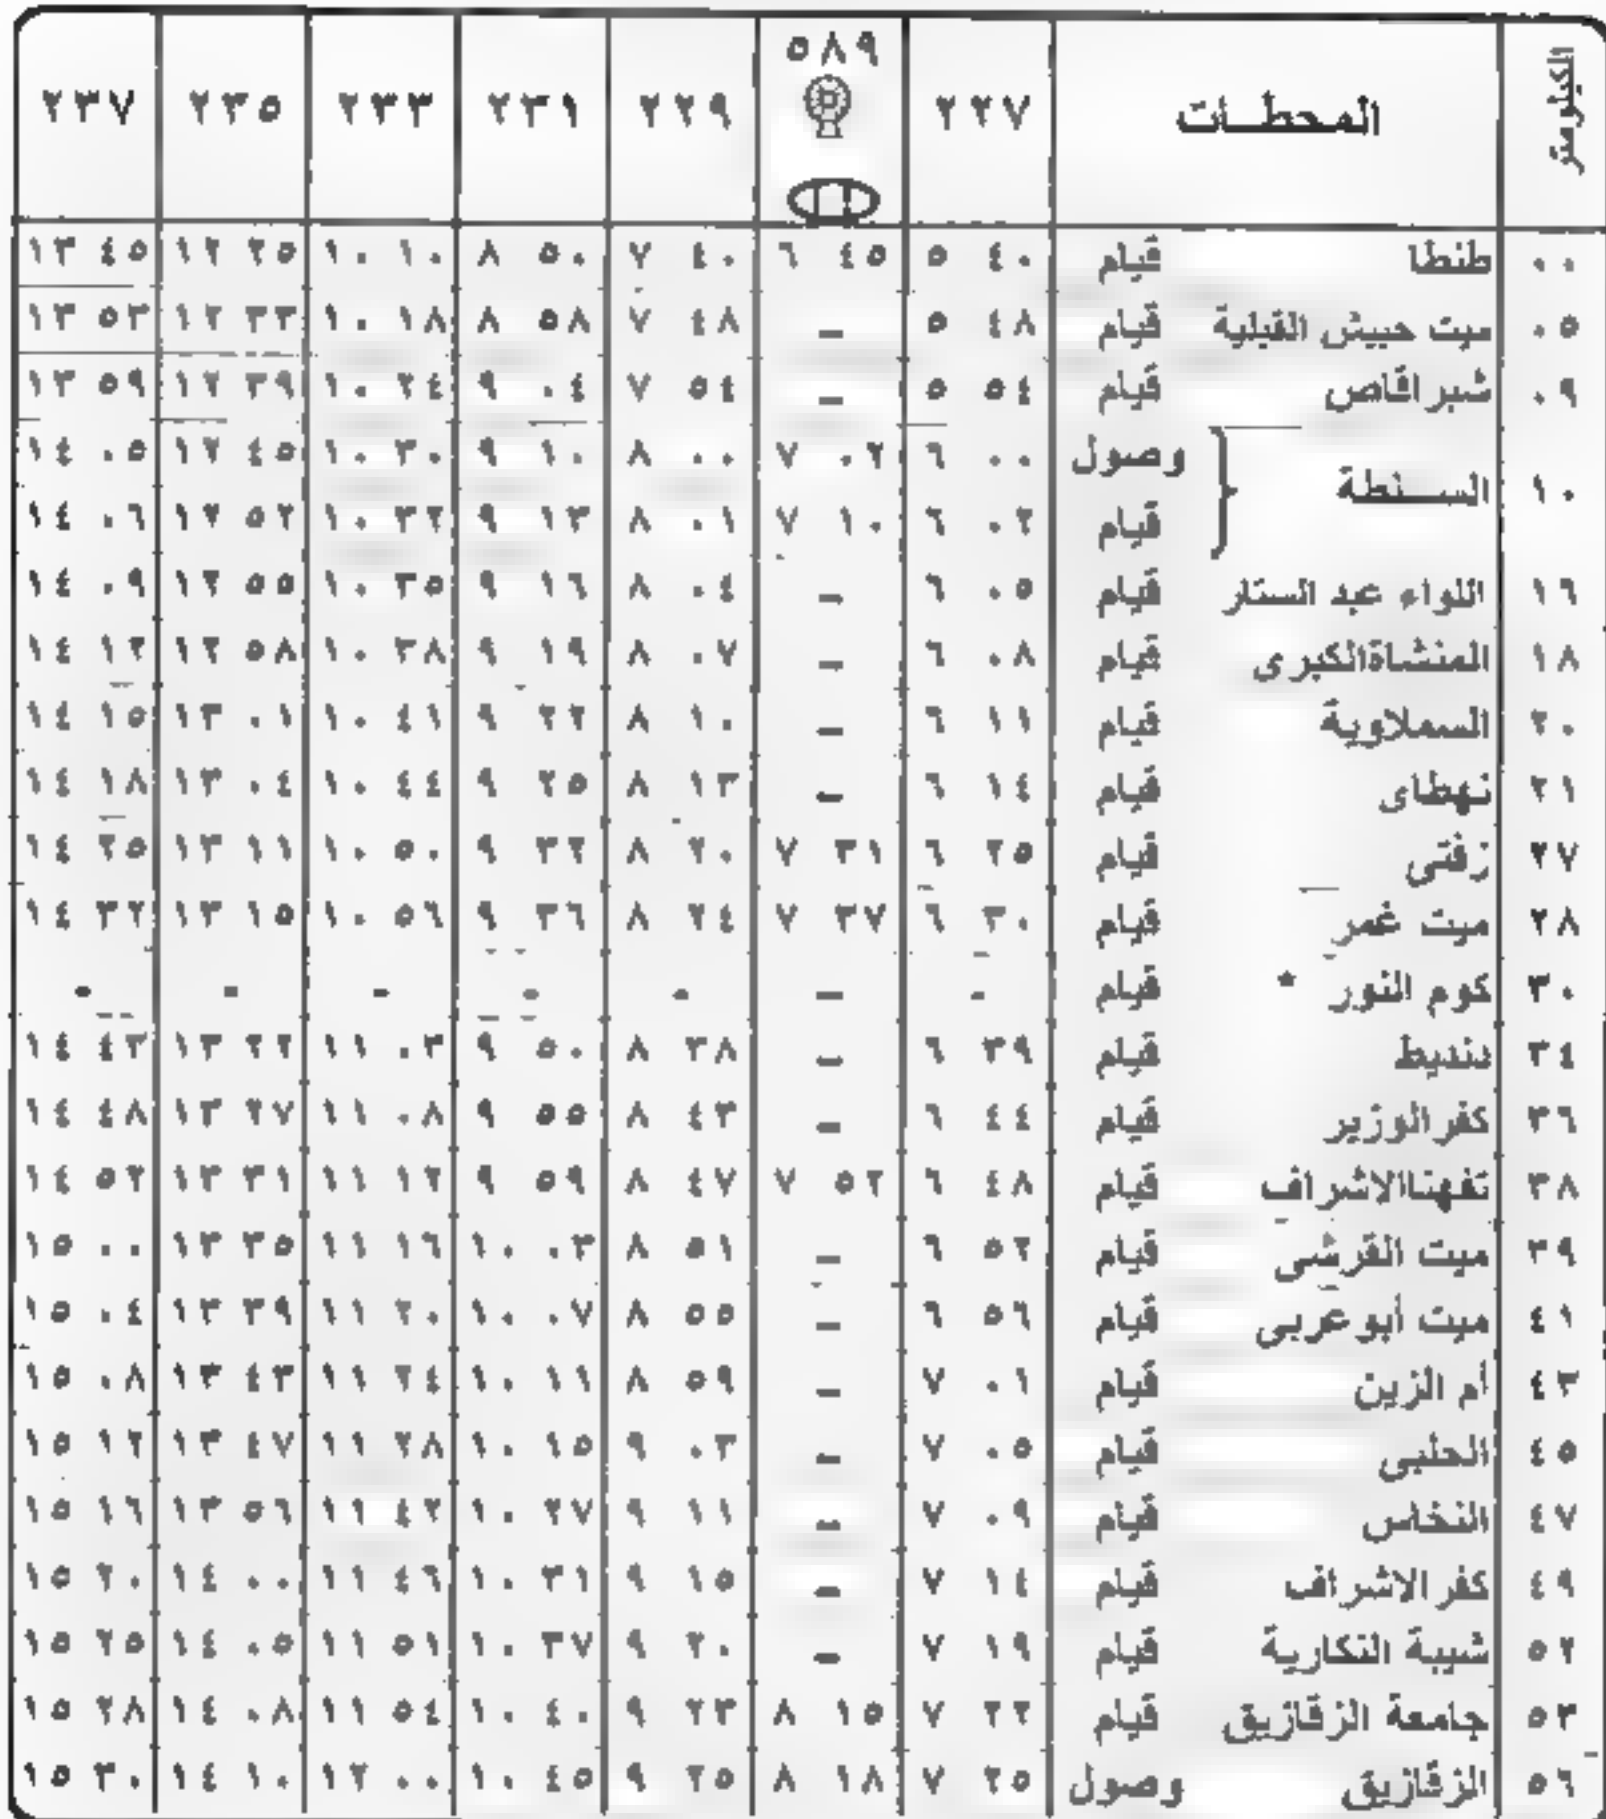 الكيلومتر المحطــات ٢٢٧ ٥٨٩ ٢٢٩ ٢٣١ ٢٣٣ ٢٣٥ ٢٣٧
٠٠ طنطا قيام ٥ ٤٠ ٦ ٤٥ ٧ ٤٠ ٨ ٥٠ ١٠ ١٠ ١٢ ٢٥ ١٣ ٤٥
٠٥ ميت حبيش القبلية قيام ٥ ٤٨ – ٧ ٤٨ ٨ ٥٨ ١٠ ١٨ ١٢ ٣٣ ١٣ ٥٣
٠٩ شبراقاص قيام ٥ ٥٤ – ٧ ٥٤ ٩ ٠٤ ١٠ ٢٤ ١٢ ٣٩ ١٣ ٥٩
١٠ الســنطة وصول ٦ ٠٠ ٧ ٠٢ ٨ ٠٠ ٩ ١٠ ١٠ ٣٠ ١٢ ٤٥ ١٤ ٠٥
قيام ٦ ٠٢ ٧ ١٠ ٨ ٠١ ٩ ١٣ ١٠ ٣٢ ١٢ ٥٢ ١٤ ٠٦
١٦ اللواء عبد الستار قيام ٦ ٠٥ – ٨ ٠٤ ٩ ١٦ ١٠ ٣٥ ١٢ ٥٥ ١٤ ٠٩
١٨ المنشاةالكبرى قيام ٦ ٠٨ – ٨ ٠٧ ٩ ١٩ ١٠ ٣٨ ١٢ ٥٨ ١٤ ١٢
٢٠ السملاوية قيام ٦ ١١ – ٨ ١٠ ٩ ٢٢ ١٠ ٤١ ١٣ ٠١ ١٤ ١٥
٢١ نهطاى قيام ٦ ١٤ – ٨ ١٣ ٩ ٢٥ ١٠ ٤٤ ١٣ ٠٤ ١٤ ١٨
٢٧ زفتى قيام ٦ ٢٥ ٧ ٣١ ٨ ٢٠ ٩ ٣٢ ١٠ ٥٠ ١٣ ١١ ١٤ ٢٥
٢٨ ميت غمر قيام ٦ ٣٠ ٧ ٣٧ ٨ ٢٤ ٩ ٣٦ ١٠ ٥٦ ١٣ ١٥ ١٤ ٣٢
٣٠ كوم النور * قيام - – - - - - -
٣٤ دنديط قيام ٦ ٣٩ – ٨ ٣٨ ٩ ٥٠ ١١ ٠٣ ١٣ ٢٢ ١٤ ٤٣
٣٦ كفرالوزير قيام ٦ ٤٤ – ٨ ٤٣ ٩ ٥٥ ١١ ٠٨ ١٣ ٢٧ ١٤ ٤٨
٣٨ تفهناالاشراف قيام ٦ ٤٨ ٧ ٥٢ ٨ ٤٧ ٩ ٥٩ ١١ ١٢ ١٣ ٣١ ١٤ ٥٢
٣٩ ميت القرشى قيام ٦ ٥٢ – ٨ ٥١ ١٠ ٠٣ ١١ ١٦ ١٣ ٣٥ ١٥ ٠٠
٤١ ميت أبوعربى قيام ٦ ٥٦ – ٨ ٥٥ ١٠ ٠٧ ١١ ٢٠ ١٣ ٣٩ ١٥ ٠٤
٤٣ أم الزين قيام ٧ ٠١ – ٨ ٥٩ ١٠ ١١ ١١ ٢٤ ١٣ ٤٣ ١٥ ٠٨
٤٥ الحلبى قيام ٧ ٠٥ – ٩ ٠٣ ١٠ ١٥ ١١ ٢٨ ١٣ ٤٧ ١٥ ١٢
٤٧ النخاس قيام ٧ ٠٩ – ٩ ١١ ١٠ ٢٧ ١١ ٤٢ ١٣ ٥٦ ١٥ ١٦
٤٩ كفرالاشراف قيام ٧ ١٤ – ٩ ١٥ ١٠ ٣١ ١١ ٤٦ ١٤ ٠٠ ١٥ ٢٠
٥٢ شيبة النكارية قيام ٧ ١٩ – ٩ ٢٠ ١٠ ٣٧ ١١ ٥١ ١٤ ٠٥ ١٥ ٢٥
٥٣ جامعة الزقازيق قيام ٧ ٢٢ ٨ ١٥ ٩ ٢٣ ١٠ ٤٠ ١١ ٥٤ ١٤ ٠٨ ١٥ ٢٨
٥٦ الزقازيق وصول ٧ ٢٥ ٨ ١٨ ٩ ٢٥ ١٠ ٤٥ ١٢ ٠٠ ١٤ ١٠ ١٥ ٣٠